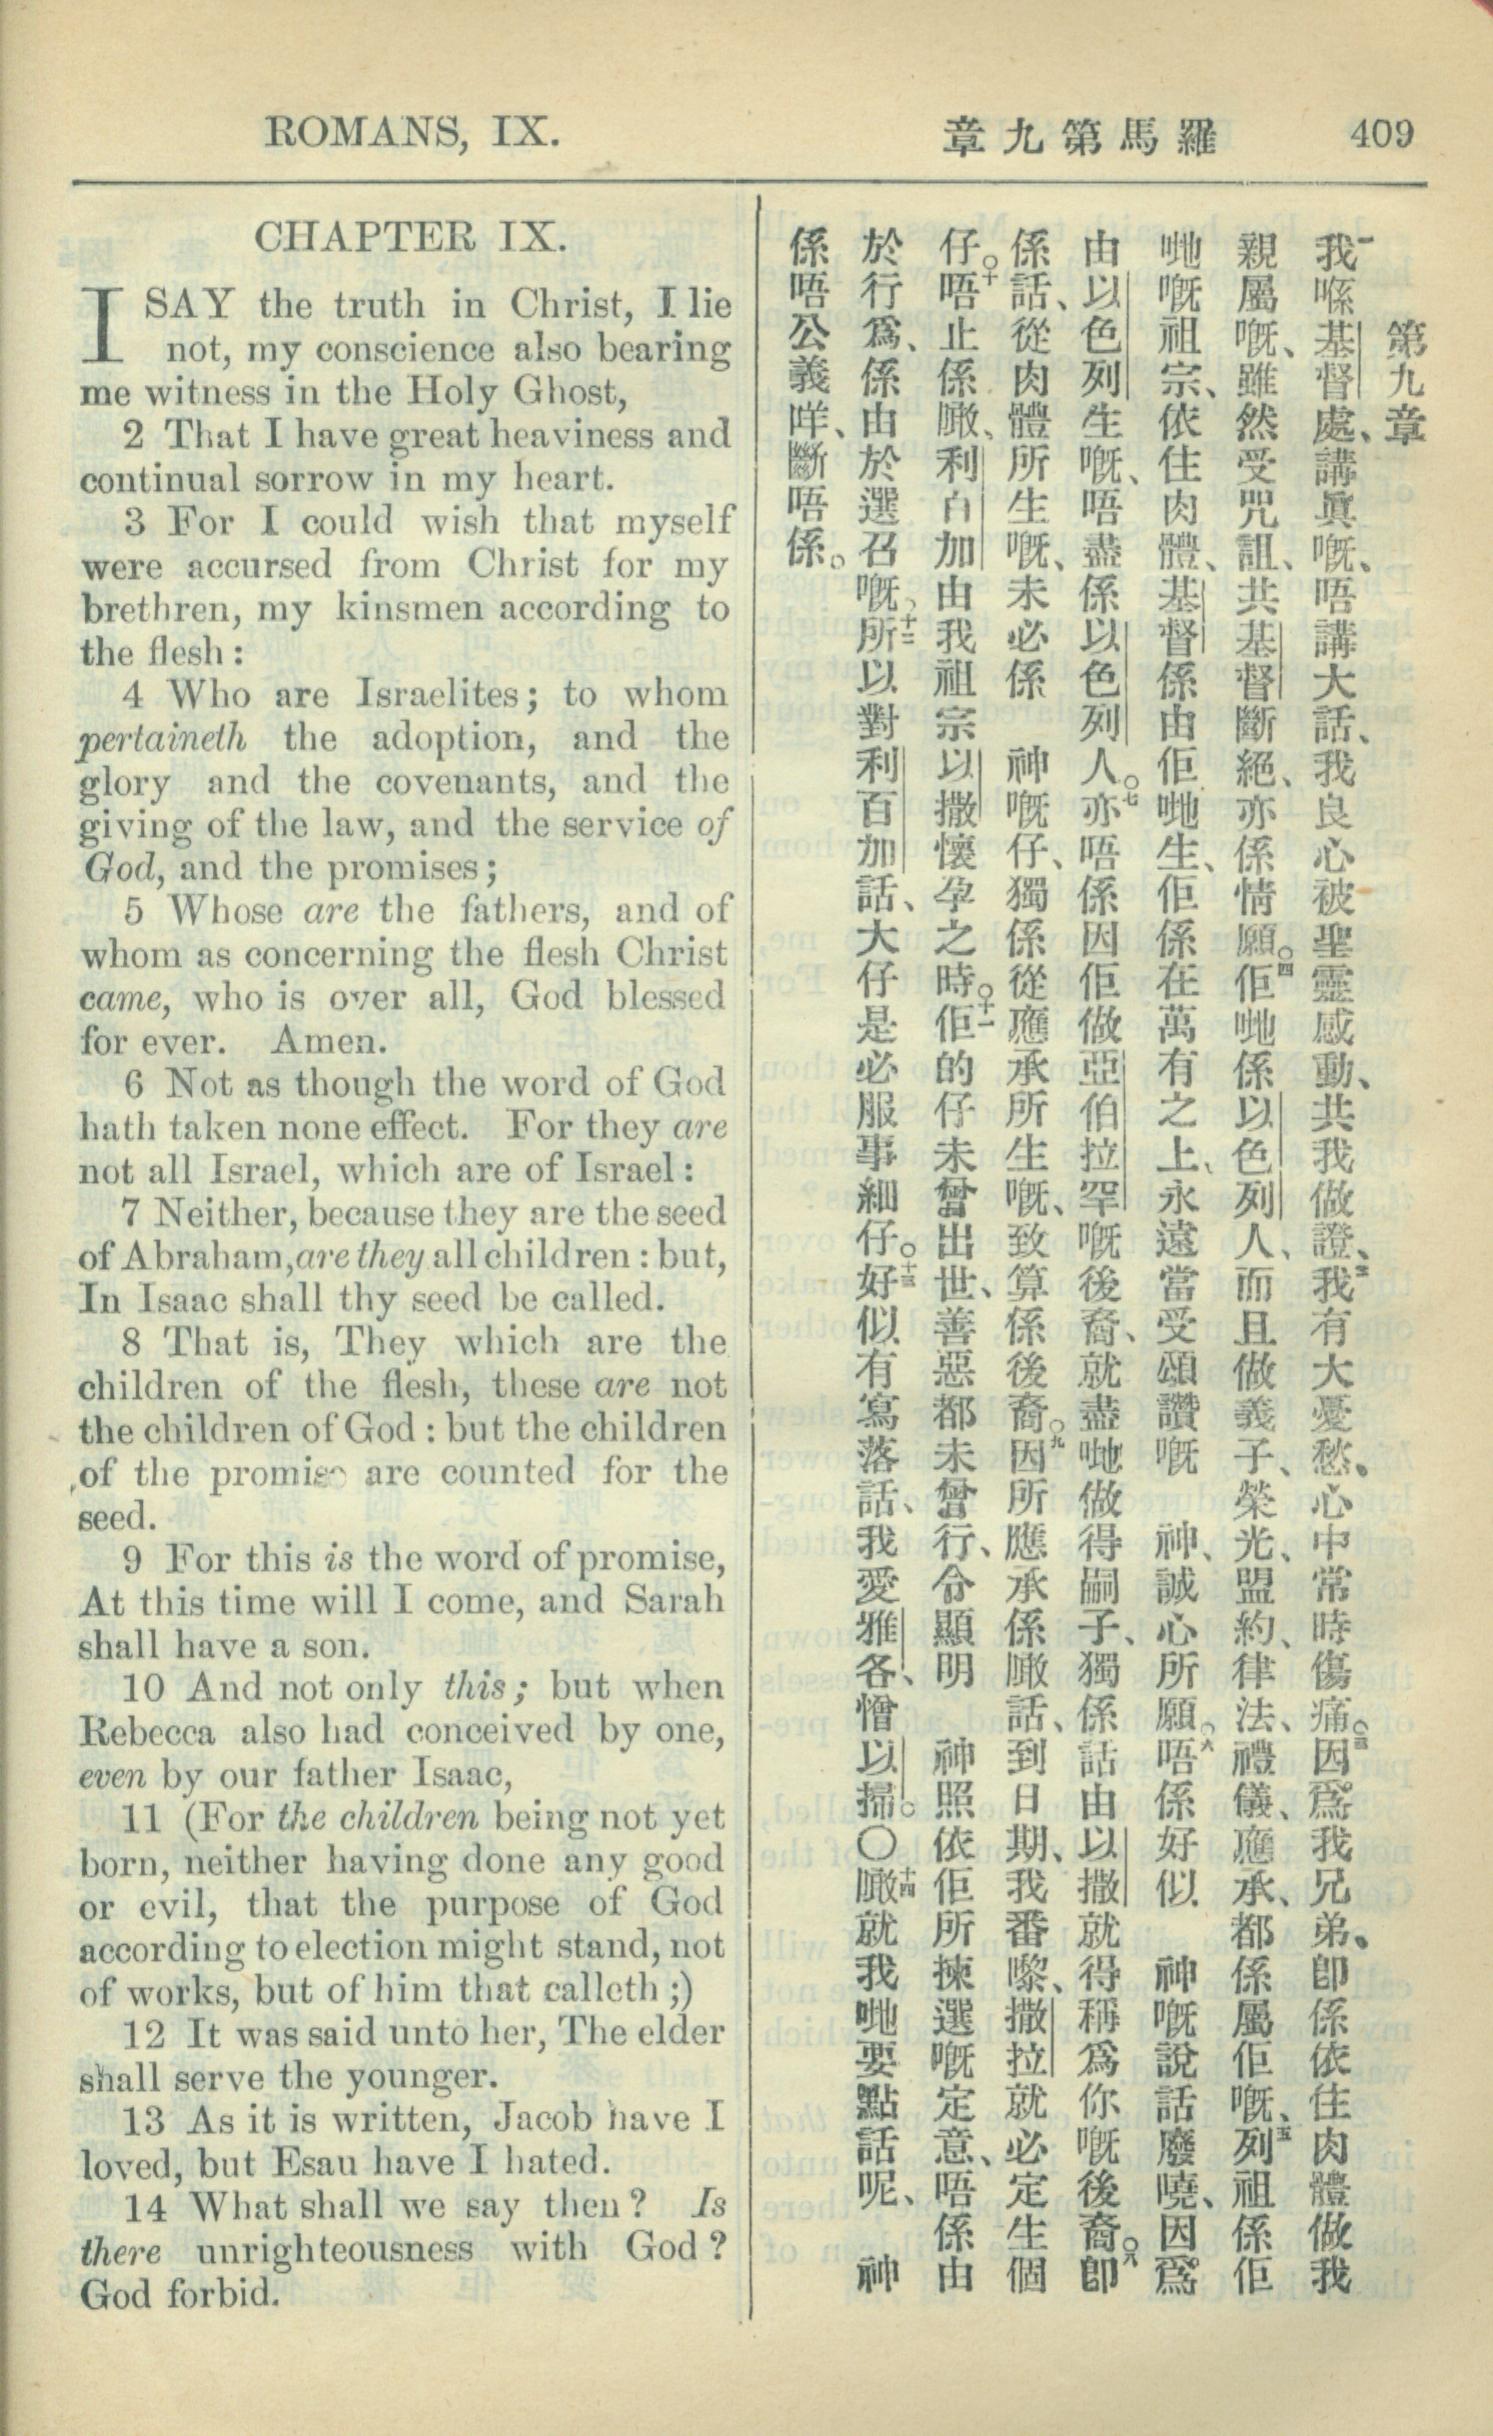 ROMANS, IX.
羅馬第九章
409
CHAPTER IX.
I SAY the truth in Christ, I lie
not, my conscience also bearing
me witness in the Holy Ghost,
2 That I have great heaviness and
continual sorrow in my heart.
3 For I could wish that myself
were accursed from Christ for my
brethren, my kinsmen according to
the flesh:
4 Who are Israelites; to whom
pertaineth the adoption, and the
glory and the covenants, and the
giving of the law, and the service of
God, and the promises;
5 Whose are the fathers, and of
whom as concerning the flesh Christ
came, who is over all, God blessed
for ever. Amen.
6 Not as though the word of God
hath taken none effect. For they are
not all Israel, which are of Israel:
7 Neither, because they are the seed
of Abraham, are they all children: but,
In Isaac shall thy seed be called.
8 That is, They which are the
children of the flesh, these are not
the children of God: but the children
of the promise are counted for the
seed.
9 For this is the word of promise,
At this time will I come, and Sarah
shall have a son.
10 And not only this; but when
Rebecca also had conceived by one,
even by our father Isaac,
11 (For the children being not yet
born, neither having done any good
or evil, that the purpose of God
according to election might stand, not
of works, but of him that calleth;)
12 It was said unto her, The elder
shall serve the younger.
13 As it is written, Jacob have I
loved, but Esau have I hated.
14 What shall we say then? Is
there unrighteousness with God?
God forbid.
第九章
一我喺基督處、講眞嘅、唔講大話、我良心被聖靈感動、共我做證、二我有大憂愁、心中常時傷痛。三因爲我兄弟、卽係依住肉體做我
親屬嘅、雖然受咒詛、共基督斷絕、亦係情願。四佢哋係以色列人、而且做義子、榮光、盟約、律法、禮儀、應承、都係屬佢嘅、五列祖係佢
哋嘅祖宗、依住肉體、基督係由佢哋生、佢係在萬有之上、永遠當受頌讚嘅 神、誠心所願。六唔係好似 神嘅說話廢嘵、因爲
由以色列生嘅、唔盡係以色列人。七亦唔係因佢做亞伯拉罕嘅後裔、就盡哋做得嗣子、獨係話由以撒就得稱爲你嘅後裔。八卽
係話、從肉體所生嘅、未必係 神嘅仔、獨係從應承所生嘅、致算係後裔。九因所應承係噉話、到日期、我番嚟、撒拉就必定生個
仔。十唔止係噉、利百加由我祖宗以撒懷孕之時。十一佢的仔未曾出世、善惡都未曾行、令顯明 神照依佢所揀選嘅定意、唔係由
於行爲、係由於選召嘅、十二所以對利百加話、大仔是必服事細仔。十三好似有寫落話、我愛雅各、憎以掃。〇十四噉就我哋要點話呢、 神
係唔公義咩、斷唔係。